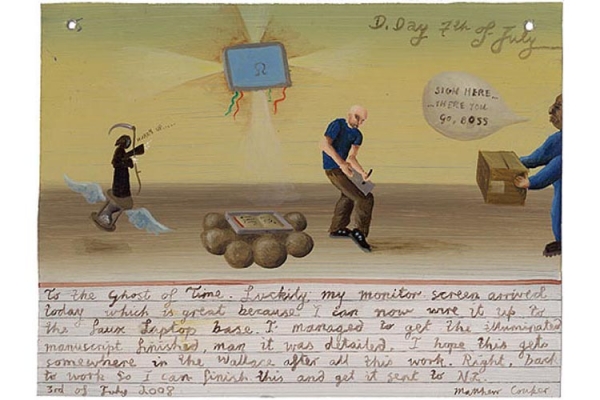 D. Day 7th of July
SIGN HERE...
...THERE YOU
GO, BOSS
Ω
To the Ghost of Time. Luckily my monitor screen arrived
today which is great because I can now wire it up to
the faux laptop base. I managed to get the illuminated
manuscript finished man it was detailed. I hope this gets
somewhere in the Wallace after all this work. Right, back
to work so I can finish this and get it sent to NZ.
3rd of July 2008 Matthew Couper